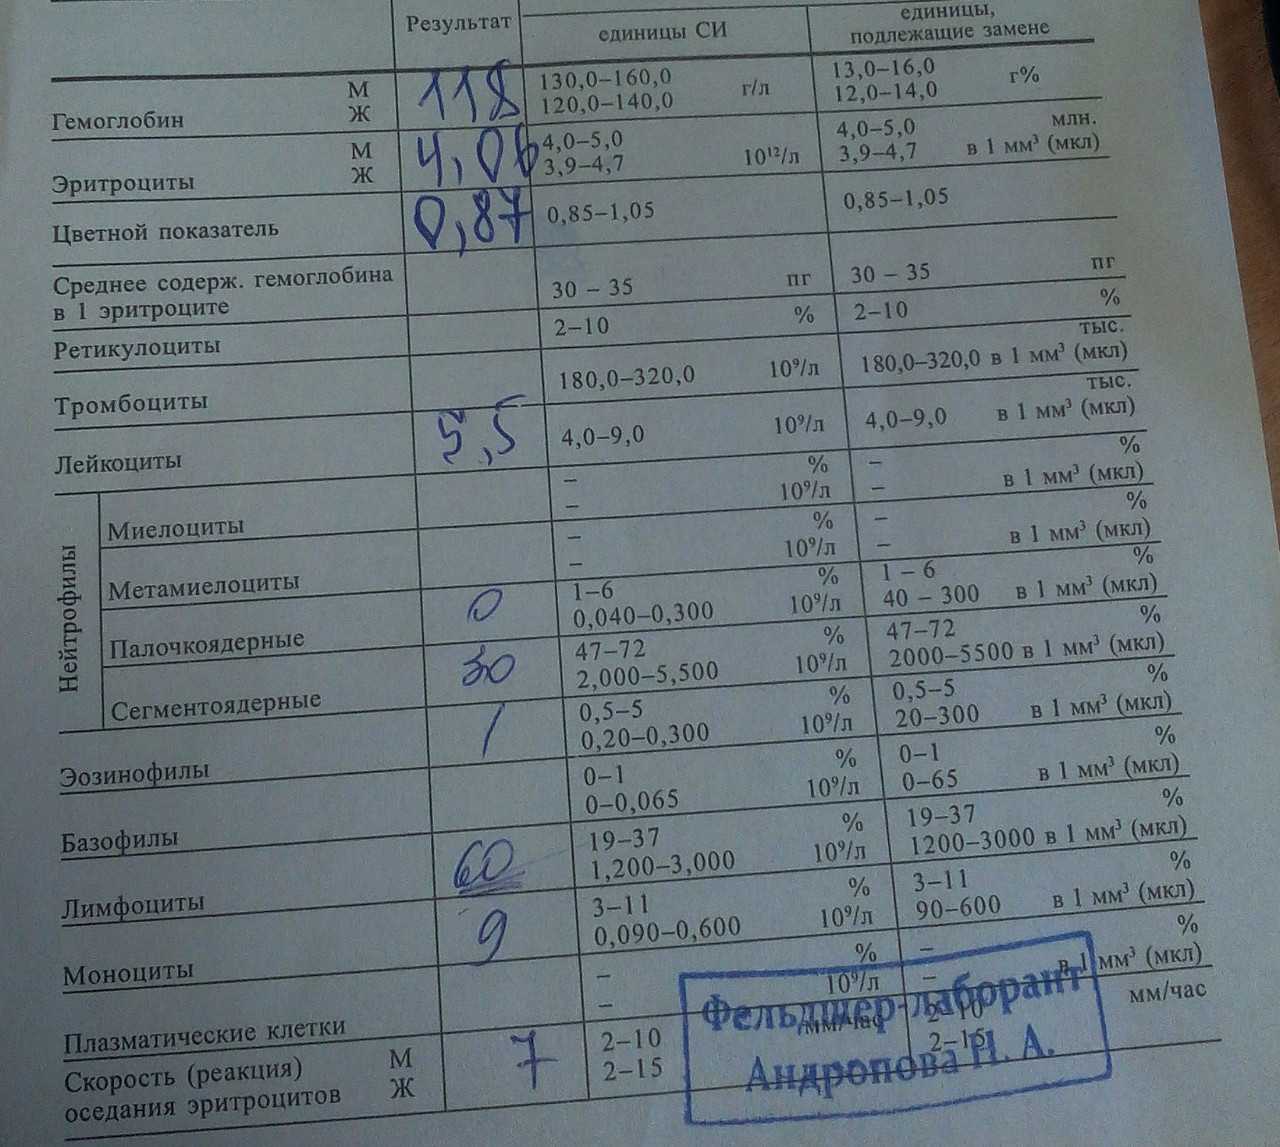 Результат единицы СИ единицы, подлежащие замене
Гемоглобин М Ж 118 130,0–160,0 120,0–140,0 г/л 13,0–16,0 12,0–14,0 г%
Эритроциты М Ж 4,06 4,0–5,0 3,9–4,7 10¹²/л 4,0–5,0 3,9–4,7 млн. в 1 мм³ (мкл)
Цветной показатель 0,87 0,85–1,05 0,85–1,05
Среднее содерж. гемоглобина
в 1 эритроците 30 – 35 пг 30 – 35 пг
Ретикулоциты 2–10 % 2–10 %
Тромбоциты 180,0–320,0 10⁹/л 180,0–320,0 тыс. в 1 мм³ (мкл)
Лейкоциты 5,5 4,0–9,0 10⁹/л 4,0–9,0 тыс. в 1 мм³ (мкл)
Нейтрофилы
Миелоциты – – % 10⁹/л – – % в 1 мм³ (мкл)
Метамиелоциты – – % 10⁹/л – – % в 1 мм³ (мкл)
Палочкоядерные 0 1–6 % 0,040–0,300 10⁹/л 1 – 6 % 40 – 300 в 1 мм³ (мкл)
Сегментоядерные 30 47–72 % 2,000–5,500 10⁹/л 47–72 % 2000–5500 в 1 мм³ (мкл)
Эозинофилы 1 0,5–5 % 0,20–0,300 10⁹/л 0,5–5 % 20–300 в 1 мм³ (мкл)
Базофилы 0–1 % 0–0,065 10⁹/л 0–1 % 0–65 в 1 мм³ (мкл)
Лимфоциты 60 19–37 % 1,200–3,000 10⁹/л 19–37 % 1200–3000 в 1 мм³ (мкл)
Моноциты 9 3–11 % 0,090–0,600 10⁹/л 3–11 % 90–600 в 1 мм³ (мкл)
Плазматические клетки – – % 10⁹/л – – % в 1 мм³ (мкл)
Скорость (реакция) М 7 2–10 мм/час 2–10 мм/час
оседания эритроцитов Ж 2–15 2–15
Фельдшер-лаборант
Андропова Н. А.